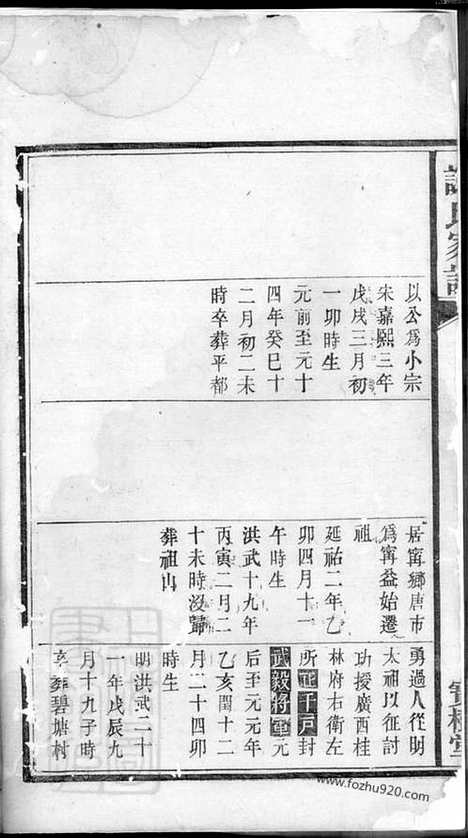 氏家譜
以公爲小宗
宋嘉熙三年
戊戌三月初
一卯時生
元前至元十
四年癸巳十
二月初二未
時卒葬平都
居甯鄉唐市
爲甯益始遷
祖
延祐二年乙
卯四月十一
午時生
洪武十九年
丙寅二月二
十未時沒歸
葬祖山
勇過人從明
太祖以征討
功授廣西桂
林府右衛左
所正千戶封
武毅將軍元
后至元元年
乙亥閏十二
月二十四卯
時生
明洪武二十
一年戊辰九
月十九子時
卒葬碧塘村
寶樹堂
www.fozhu920.com